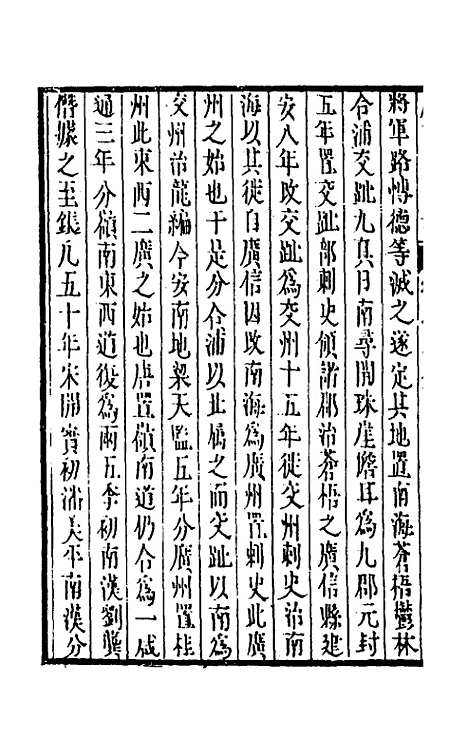 將軍路愽德等滅之遂定其地置南海蒼梧鬱林
合浦交趾九真日南尋開珠崖儋耳為九郡元封
五年置交趾部刺史領諸郡治蒼梧之廣信縣建
安八年改交趾為交州十五年徙交州刺史治南
海以其徙自廣信因改南海為廣州置刺史此廣
州之始也于是分合浦以北屬之而交趾以南為
交州治龍編今安南地梁天監五年分廣州置桂
州此東西二廣之始也唐置嶺南道仍合為一咸
通三年分嶺南東西道復為兩五季初南漢劉龑
僭據之至鋹凡五十年宋開寳初潘美平南漢分